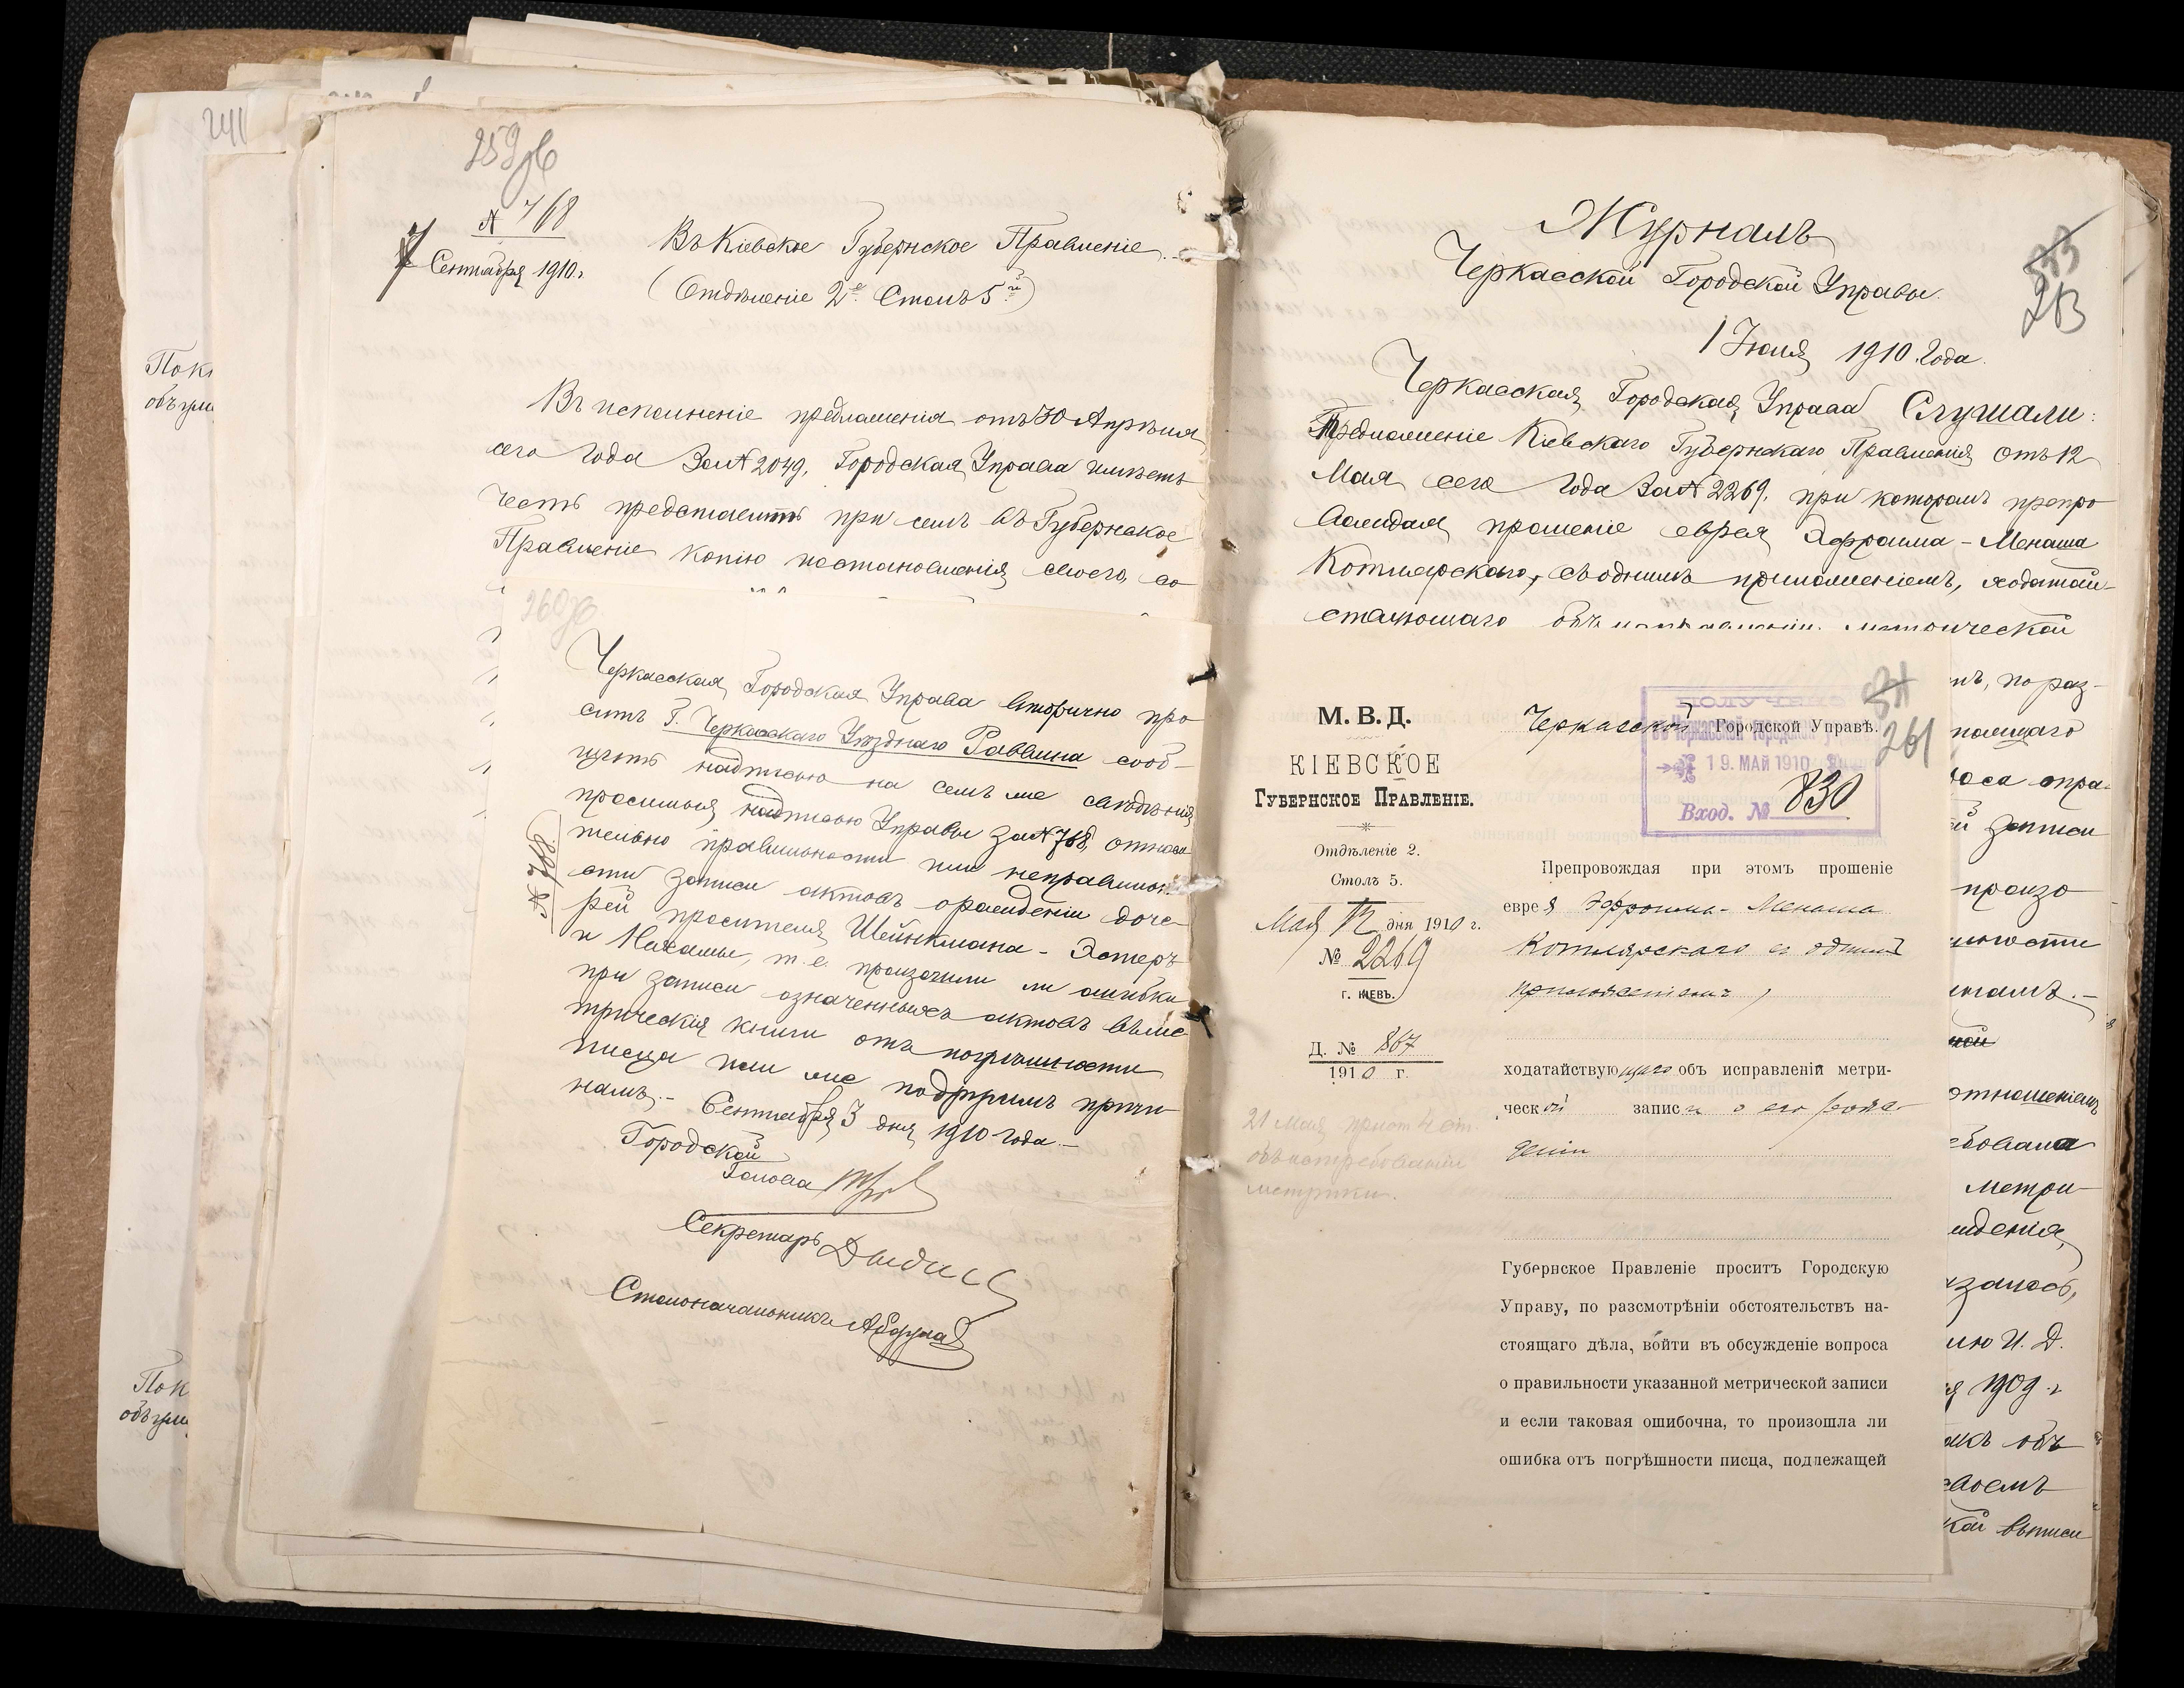 241
Пок
объ
Пок
объ
259 об
№ 768
7 Сентября 1910 г.
Въ Кіевское Губернское Правленіе
(Отдѣленіе 2е Столъ 5й)
Въ исполненіе предложенія отъ 30 Апрѣля
сего года за № 2049, Городская Управа имѣетъ
честь представить при семъ въ Губернское
Правленіе копію постановленія своего, со
260 об
Черкасская Городская Управа вторично про
ситъ Г. Черкасскаго Уѣзднаго Раввина сооб-
щить надписью на семъ же свѣдѣнія
просимыя надписью Управы за № 768, относи
тельно правильности или неправильн.
сти записи актовъ о рожденіи доче-
рей просителя Шейнкмана - Эстеръ
и Нахамы, т. е. произошли ли ошибки
при записи означенныхъ актовъ въ ме
трическія книги отъ погрѣшности
писца или же по другимъ причи
намъ. - Сентября 3 дня 1910 года. -
№ 768
Городской
Голова
Секретарь
Столоначальникъ
Журналъ
Черкасской Городской Управы.
333
263
1 Іюля 1910 года.
Черкасская Городская Управа Слушали:
Предложеніе Кіевскаго Губернскаго Правленія отъ 12
Мая сего года за № 2269, при которомъ препро
вождая прошеніе еврея Эфроима - Менаша
Котлярскаго, съ однимъ приложеніемъ, ходатай-
ствующаго объ исправленіи метрической
М. В. Д.
КІЕВСКОЕ
ГУБЕРНСКОЕ ПРАВЛЕНІЕ.
Отдѣленіе 2.
Столъ 5.
Мая 12 дня 1910 г.
№ 2269
г. КІЕВЪ.
Д. № 867
1910 г.
21 Мая
объ истребованіи
метрики.
331
261
Черкасской Городской Управѣ.
ПОЛУЧЕНО
въ Черкасской городской управѣ
19. МАЙ 1910
Вход. № 830
Препровождая при этомъ прошеніе
еврея Эфроима - Менаша
Котлярскаго съ однимъ
приложеніемъ,
ходатайствующаго объ исправленіи метри-
ческой записи о его рож-
деніи
Губернское Правленіе проситъ Городскую
Управу, по разсмотрѣніи обстоятельствъ на-
стоящаго дѣла, войти въ обсужденіе вопроса
о правильности указанной метрической записи
и если таковая ошибочна, то произошла ли
ошибка отъ погрѣшности писца, подлежащей
по раз-
записи
произо
отношеніемъ
метри-
И. Д.
1909 г.
объ
своемъ
выписи